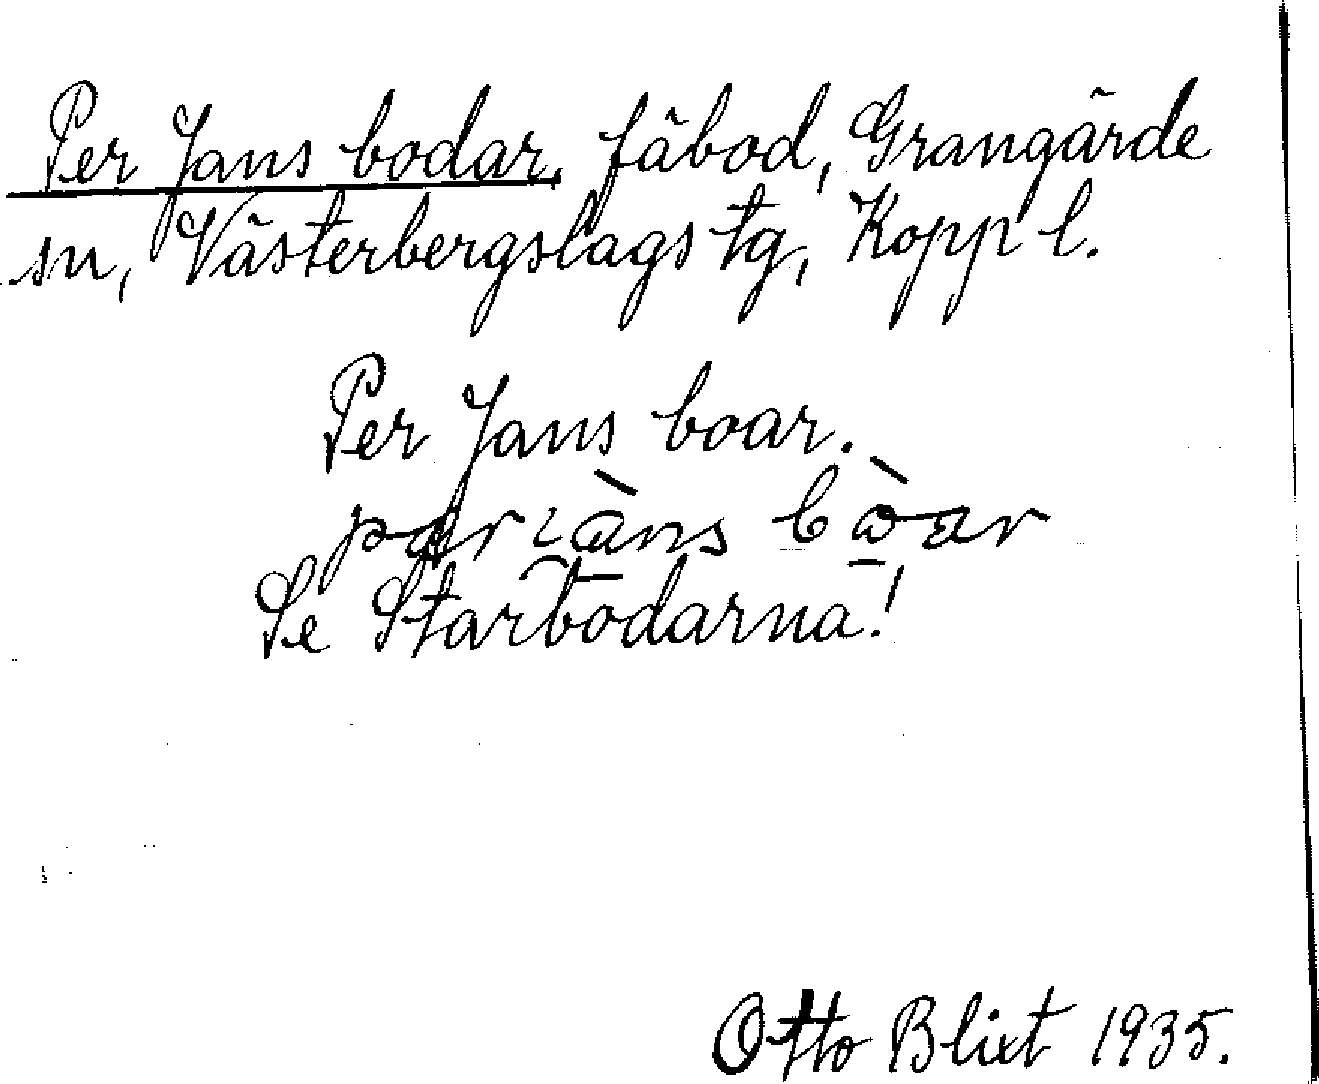 Per Jans bodar, fäbod, Grangärde
sn, Västerbergslags tg, Kopp l.
Per Jans boar.
Se Starbodarna!
Otto Blixt 1935.